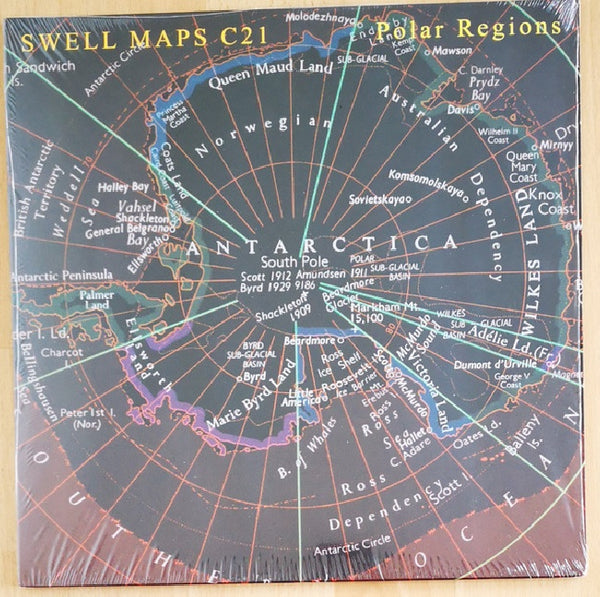 SWELL MAPS C21
Polar Regions
Molodezhnaya
Enderby
Land
Kemp
Coast
Mawson
Antarctic Circle
Sandwich
Is.
Queen Maud Land
SUB-GLACIAL
C. Darnley
Prydz
Bay
Davis
Princess
Martha
Coast
Norwegian
Australian
Dependency
Wilhelm II
Coast
Mirnyy
Queen
Mary
Coast
Knox
Coast
WILKES LAND
British Antarctic
Territory
Weddell
Sea
Coats Land
Caird Coast
Luitpold
Coast
Halley Bay
Vahsel
Shackleton
General Belgrano
Bay
Ellsworth
Komsomolskaya
Sovietskaya
ANTARCTICA
South Pole
Scott 1912 Amundsen 1911
Byrd 1929 9186
POLAR
SUB-GLACIAL
BASIN
Antarctic Peninsula
Palmer
Land
Shackleton
1909
Beardmore
Glacier
Markham Mt.
15,100
WILKES
SUB GLACIAL
BASIN
Adélie Ld. (Fr.)
Dumont d'Urville
George V
Coast
Peter I. Ld.
Charcot I.
Bellingshausen
Sea
Peter 1st I.
(Nor.)
Ellsworth
Land
BYRD
SUB-GLACIAL
BASIN
Byrd
Marie Byrd Land
Beardmore
Ross
Ice Shelf
Roosevelt I.
Ice Barrier
Little
America
B. of Whales
McMurdo
Sound
Scott
McMurdo
Mt.
Erebus
Victoria Land
Ross
Sea
Hallet
C. Adare
Oates Ld.
Balleny
Is.
Scott I.
Ross
Dependency
Antarctic Circle
SOUTHERN OCEAN